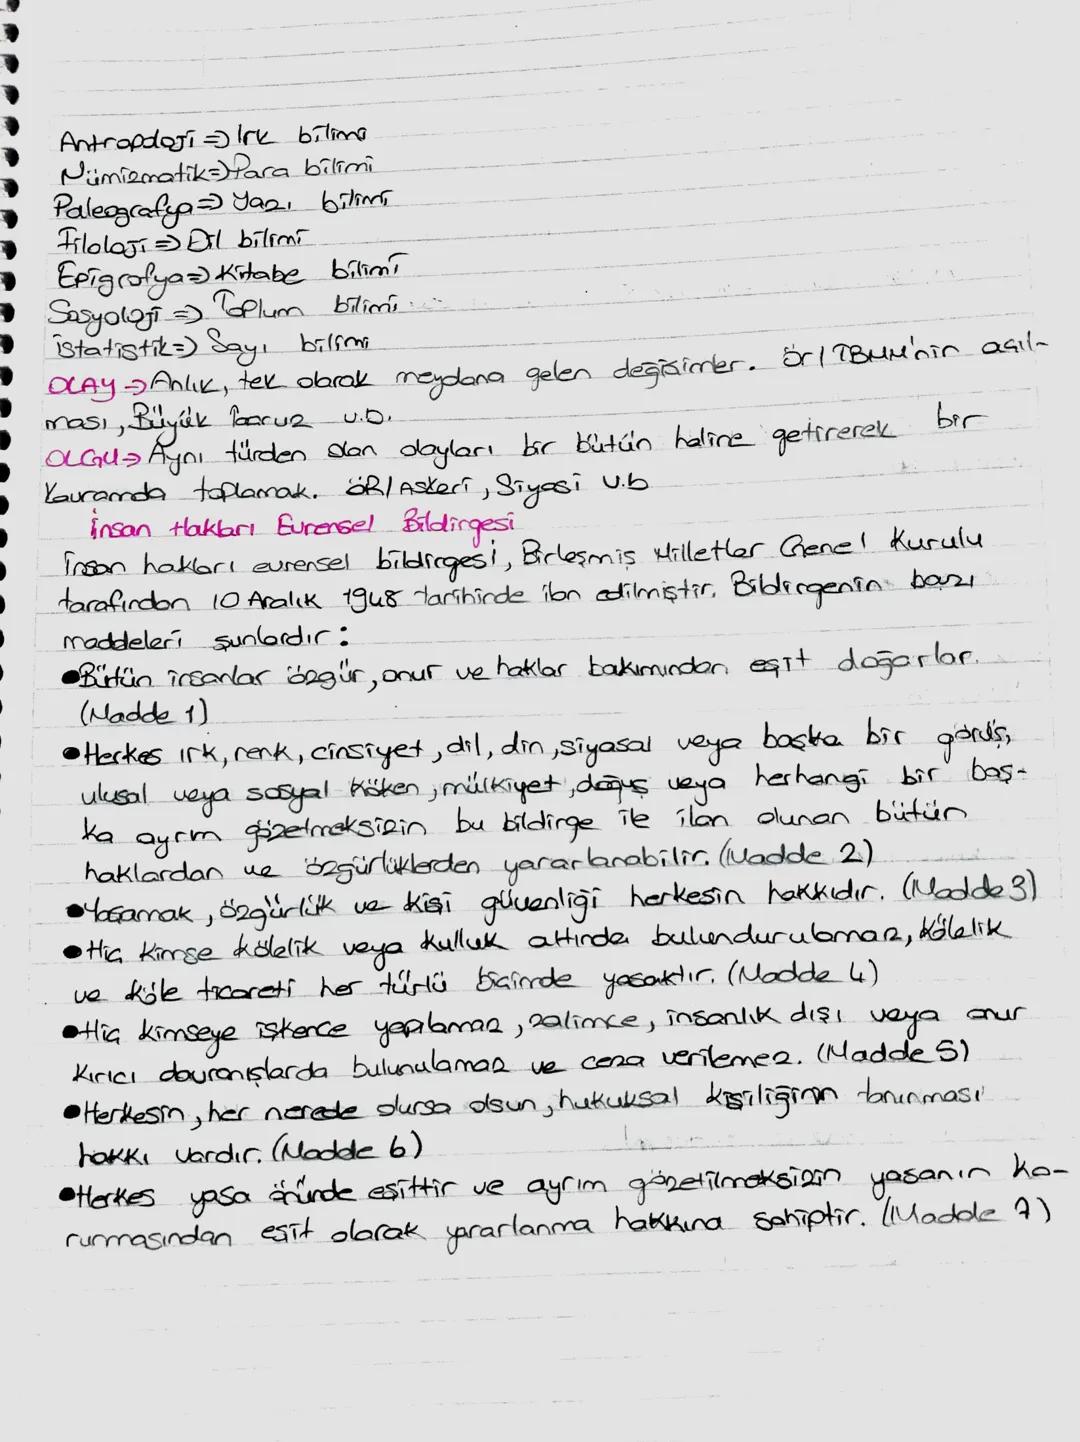 Antropoloji => Irk bilimi
Nümizmatik => Para bilimi
Paleografya => Yazı bilimi
Filoloji => Dil bilimi
Epigrafya => Kitabe bilimi
Sosyoloji => Toplum bilimi
istatistik => Sayı bilimi
OLAY -> Anlık, tek olarak meydana gelen değişimler. Ör/ TBMM'nin açıl-
ması, Büyük Taaruz v.b.
OLGU -> Aynı türden olan olayları bir bütün haline getirerek bir
kavramda toplamak. ÖR/ Askeri, Siyasi v.b
İnsan Hakları Evrensel Bildirgesi
İnsan hakları evrensel bildirgesi, Birleşmiş Milletler Genel Kurulu
tarafından 10 Aralık 1948 tarihinde ilan edilmiştir. Bildirgenin bazı
maddeleri şunlardır:
• Bütün insanlar özgür, onur ve haklar bakımından eşit doğarlar.
(Madde 1)
• Herkes ırk, renk, cinsiyet, dil, din, siyasal veya başka bir görüş,
ulusal veya sosyal köken, mülkiyet, doğuş veya herhangi bir baş-
ka ayrım gözetmeksizin bu bildirge ile ilan olunan bütün
haklardan ve özgürlüklerden yararlanabilir. (Madde 2)
• Yaşamak, özgürlük ve kişi güvenliği herkesin hakkıdır. (Madde 3)
• Hiç kimse kölelik veya kulluk altında bulundurulamaz, kölelik
ve köle ticareti her türlü biçimde yasaktır. (Madde 4)
• Hiç kimseye işkence yapılamaz, zalimce, insanlık dışı veya onur
kırıcı davranışlarda bulunulamaz ve ceza verilemez. (Madde 5)
• Herkesin, her nerede olursa olsun, hukuksal kişiliğinin tanınması
hakkı vardır. (Madde 6)
• Herkes yasa önünde eşittir ve ayrım gözetilmeksizin yasanın ko-
runmasından eşit olarak yararlanma hakkına sahiptir. (Madde 7)